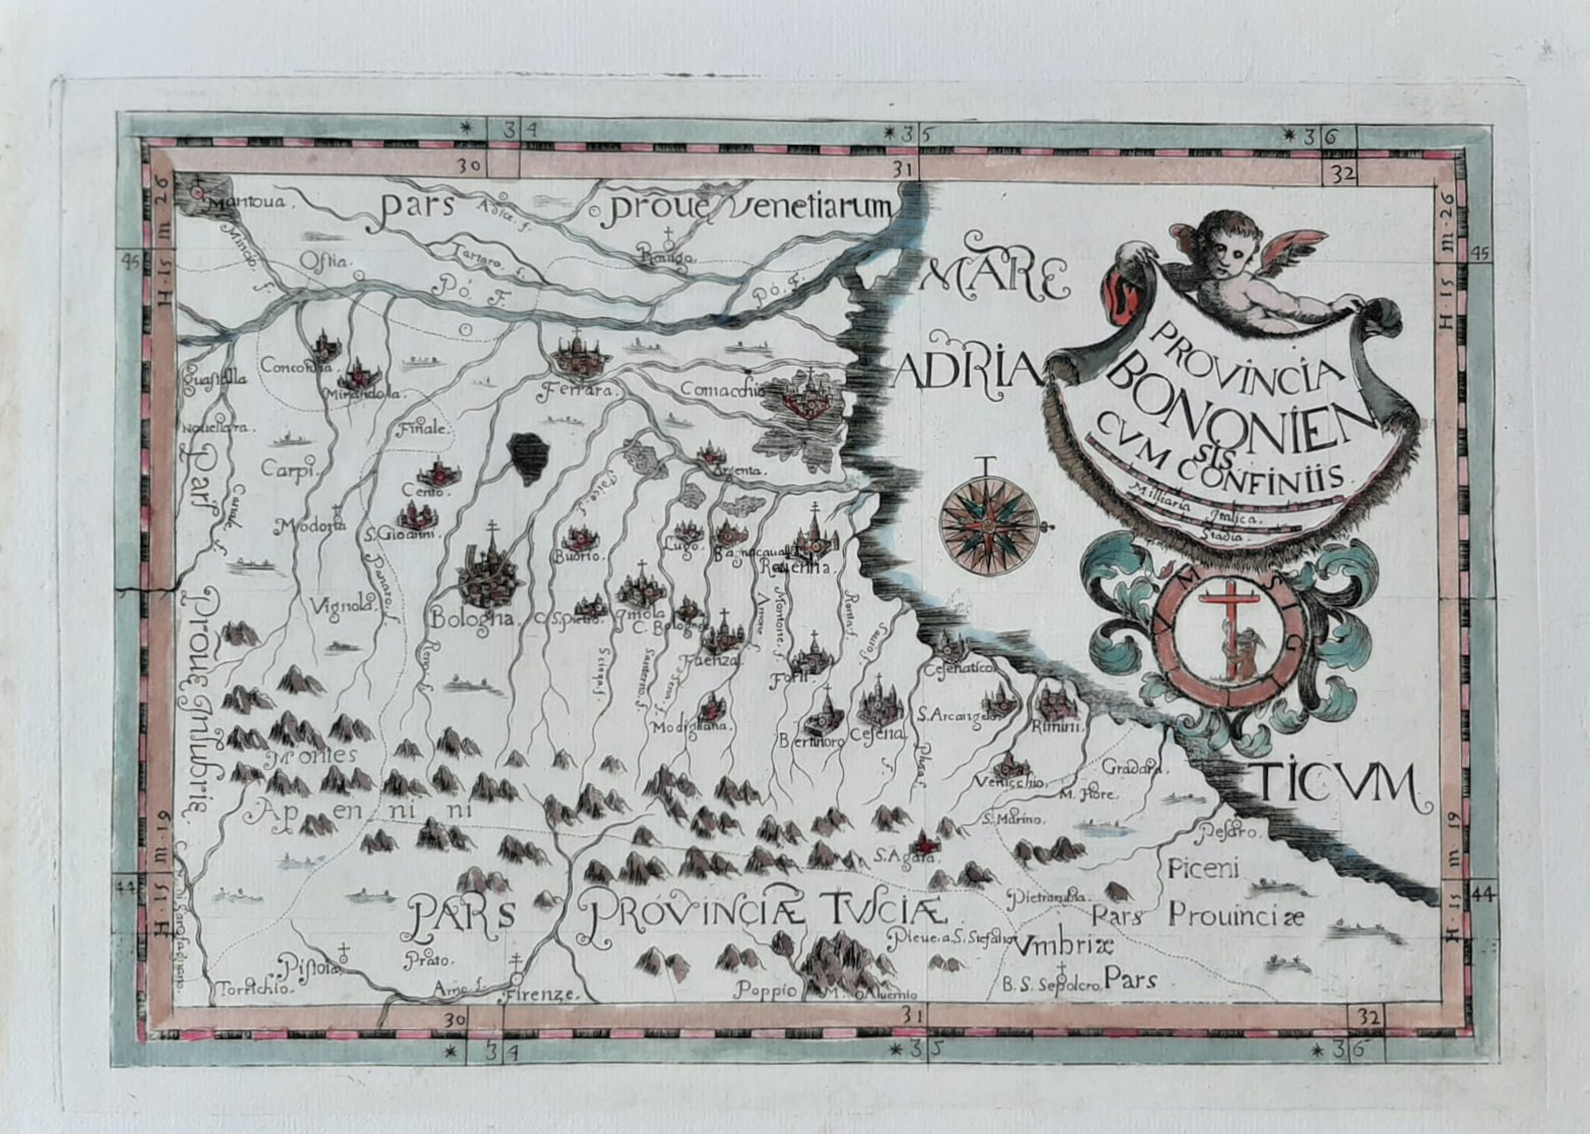 * 34 * 35 * 36
30 31 32
H · 15 m 26
H · 15 m · 26
45
45
Mantoua.
Pars Proue Venetiarum
Adice. f.
Mincio. f.
Tartaro. f.
Rouigo.
Ostia.
Pó. F.
Pó. F.
MARE
ADRIA
TICVM
PROVINCIA
BONONIEN
SIS
CVM CONFINIIS
Milliaria Italica.
Stadia.
M SIG
Concordia
Guastalla
Mirandola.
Ferrara.
Comacchio
Nouellara.
Finale.
Carpi.
Argenta.
Cento.
Modona
S. Gioanni.
Budrio.
Lugo.
Bagnacauallo
Rauenna.
Canale. f.
Panaro. f.
Vignola.
Bologna.
C. S. Pietro.
Imola
C. Bolognese
Faenza.
Amone f.
Montone. f.
Ronco f.
Sauio f.
Forli.
Cesenatico
Reno. f.
Santerno. f.
Seno. f.
Modigliana.
Bertinoro
Cesena.
S. Arcangelo
Rimini.
Pars Proue Insubrie.
Montes
Apennini
Verucchio
Gradara.
M. Fiore.
S. Marino.
Pesaro.
S. Agata.
H · 15 m · 19
H · 15 m · 19
44
44
PARS PROVINCIÆ TVSCIÆ
Piceni
Pars Prouinciæ
Vmbriæ
Pars
Pieue. a. S. Stefano
Pistoia.
Prato.
Torrichio.
Arno. f.
Firenze.
Poppio
M. Aluernio
B. S. Sepolcro.
30 31 32
* 34 * 35 * 36